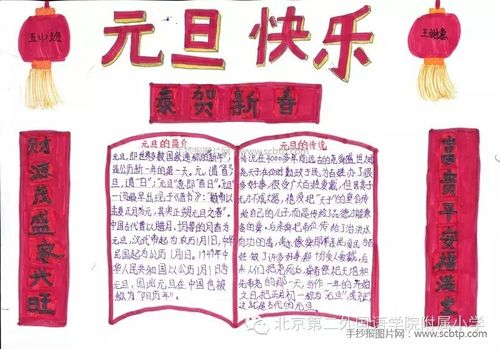 五
班
元旦快乐
恭贺新春
财源茂盛家兴旺
元旦的简介
元旦,即世界多数国家通称的"新年",
是公历新一年的第一天。元,谓"首";
旦,谓"日","元旦"意即"首日"。"元旦"
一词最早出现于《晋书》:
孟夏正月为元,其实正朔元旦之春"。
中国古代曾以腊月、十月的月首为
元旦,汉武帝起为农历1月1日,中华
民国起为公历1月1日。1949年中
华人民共和国以公历1月1日为
元旦,因此元旦在中国也被
称为"阳历年"。
元旦的传说
传说在4000多年前远古的尧舜盛世,
尧天子在位时勤政于民为百姓办了很
多好事,很受广大百姓爱戴,但因其子
无才不成器,他没把"天子"的皇位传
给自己的儿子,而是传给品德才能兼
备的舜。后来舜把帝位传给了治洪水
有功的禹,
做了许多好事都十分爱戴,后
来人们把尧死后,舜祭天地和
先帝尧的那一天,当作一年的开始
之日,把正月初一称为"元旦",或"元正"
这就是古代的元旦。
富贵平安福满堂
手抄报图片网 - www.scbtp.com
北京第二外国语学院附属小学
手抄报图片网 - www.scbtp.com